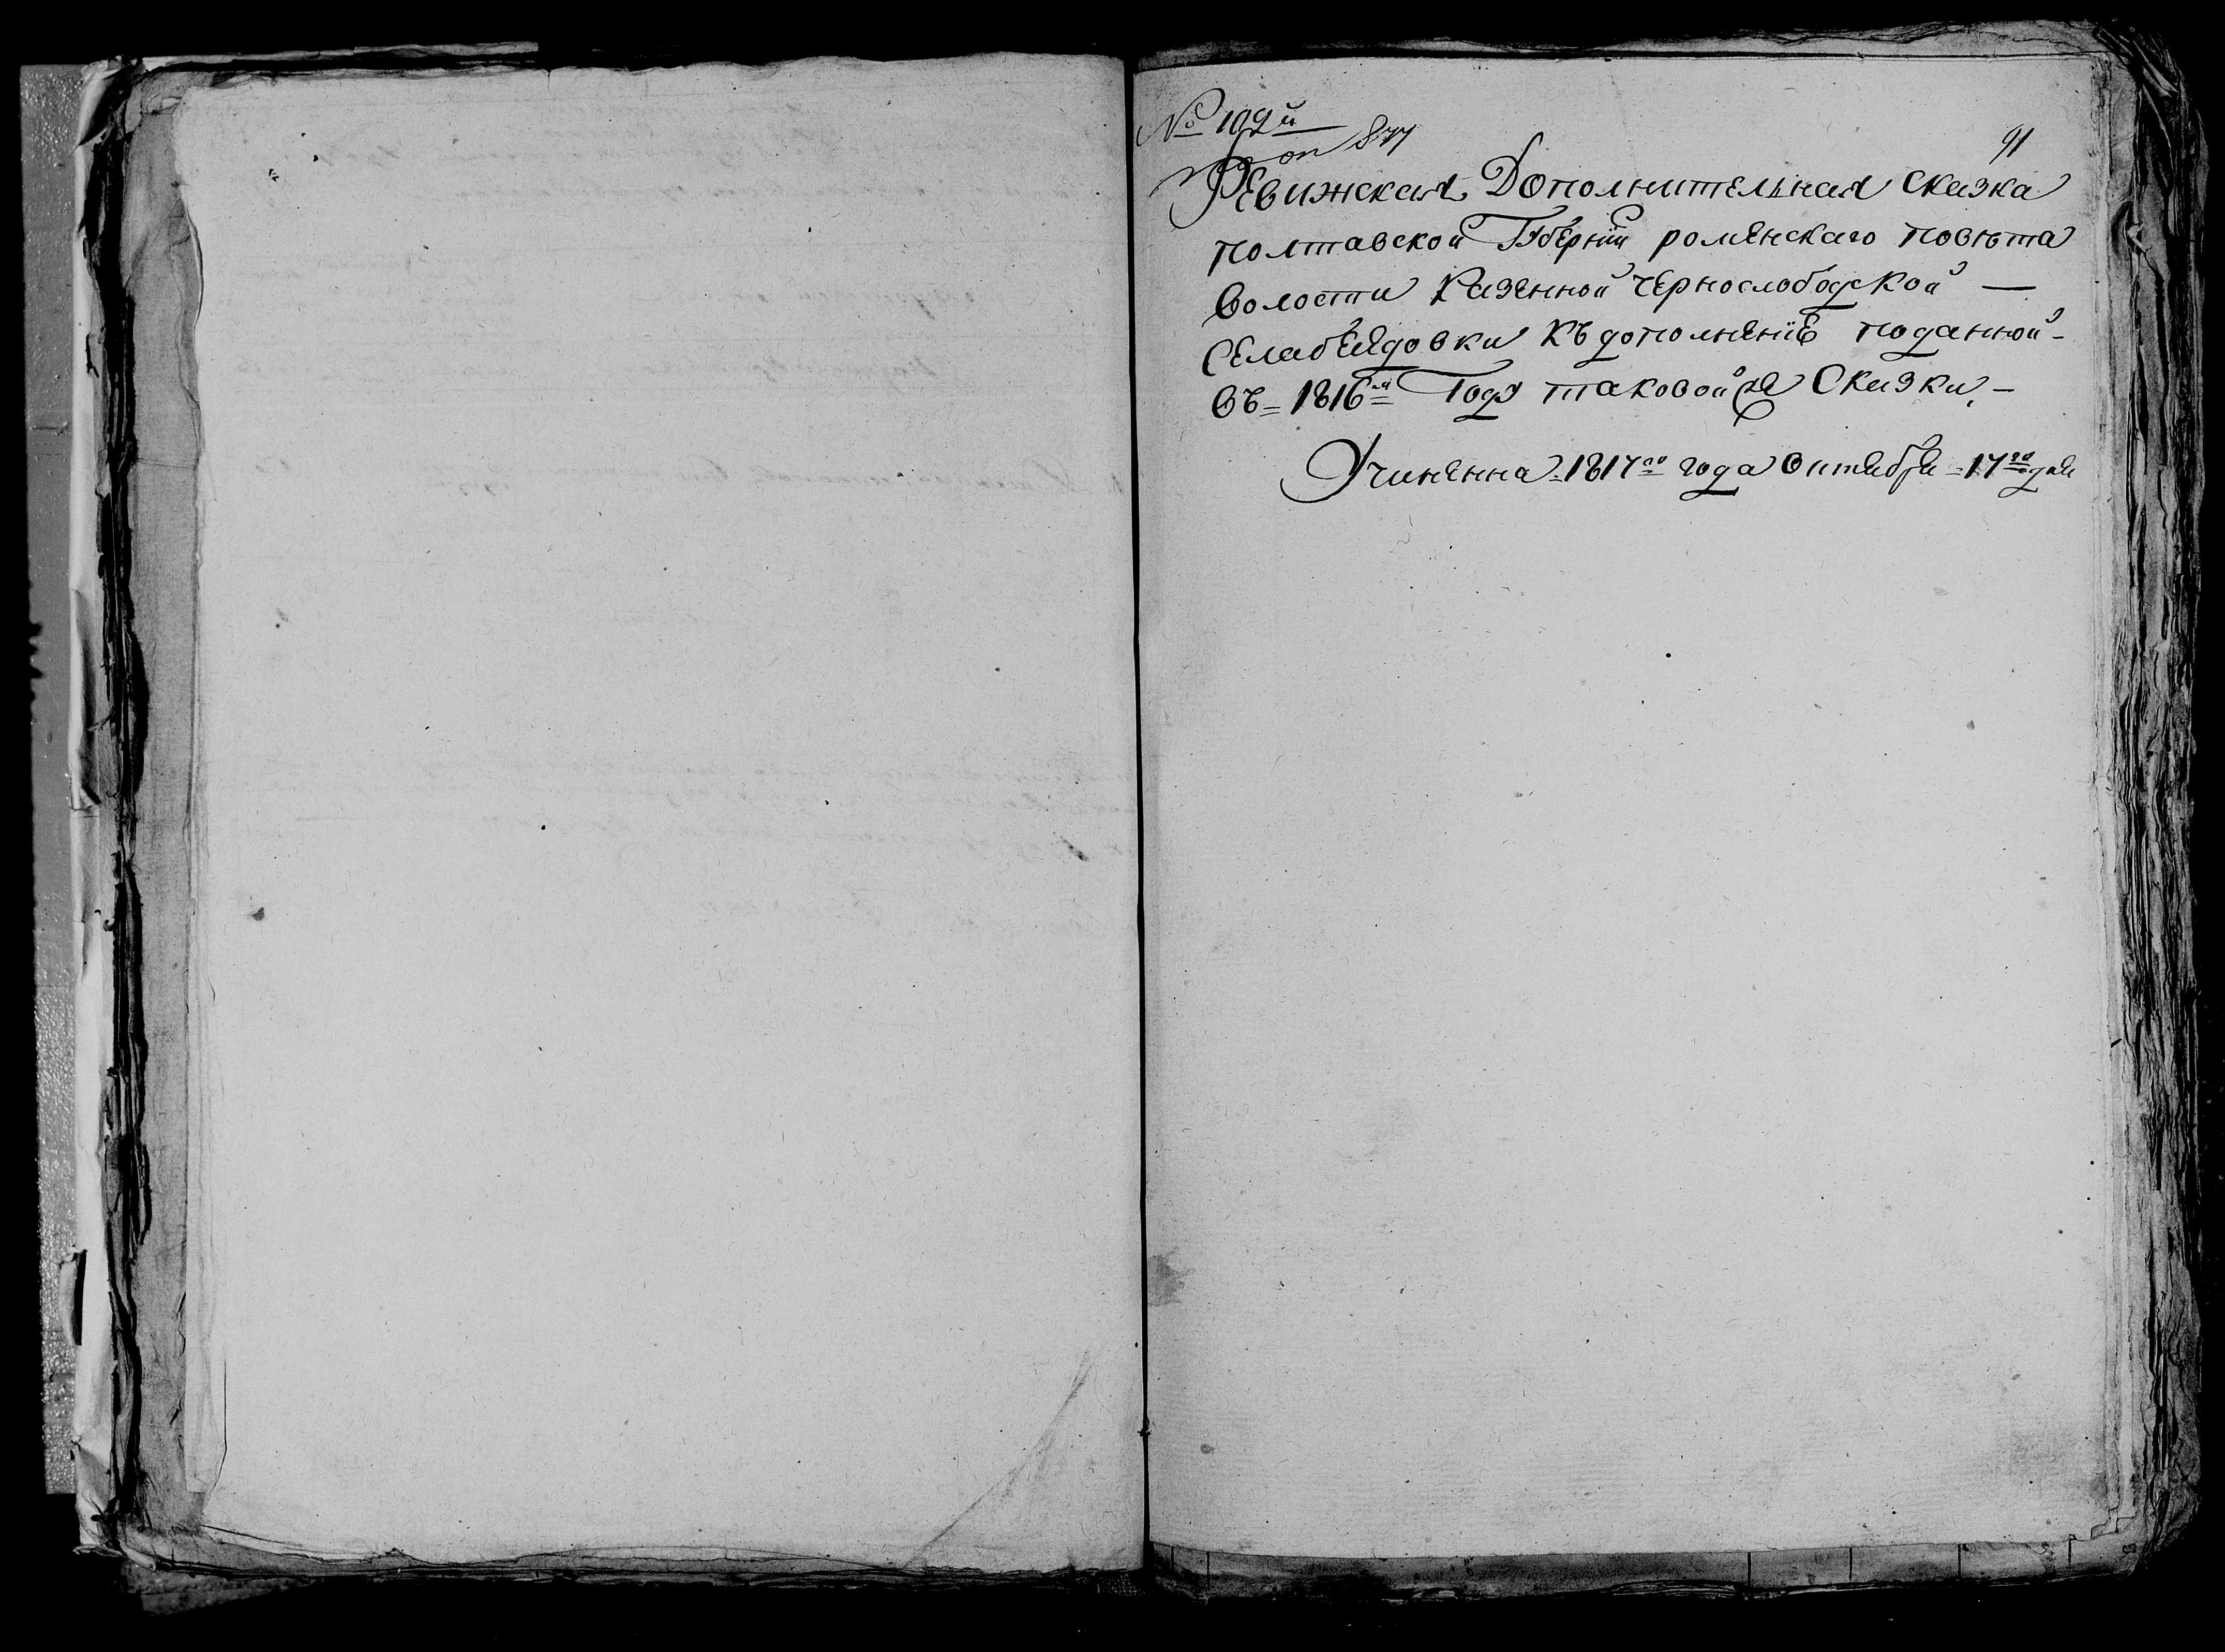 № 109й
877
91
Ревижская Дополнительная Сказка
полтавской Губернїи роменскаго повѣта
волости Казенной Чернослободской —
Села бѣядовки Къ дополненїе поданной -
въ = 1816м Году таковойже Сказки, -
Учиненна 1817го года Октября = 17го дня